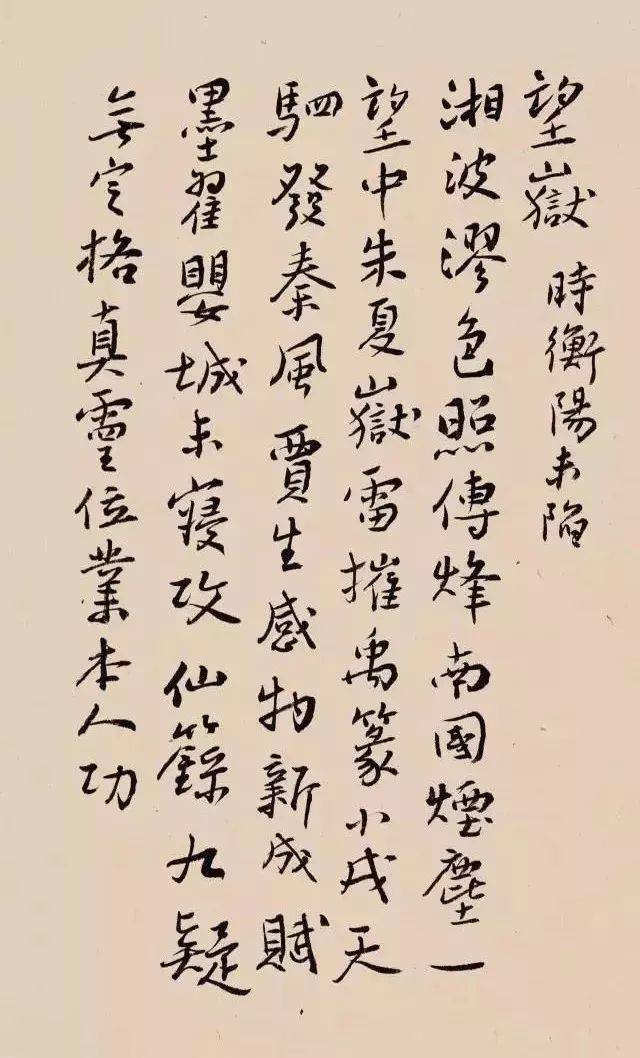 望嶽 時衡陽未陷
湘波漻色照傳烽南國煙塵一
望中朱夏嶽雷摧禹篆小戎天
駟發秦風賈生感物新成賦
墨翟嬰城未寢攻仙籙九疑
無定格真靈位業本人功